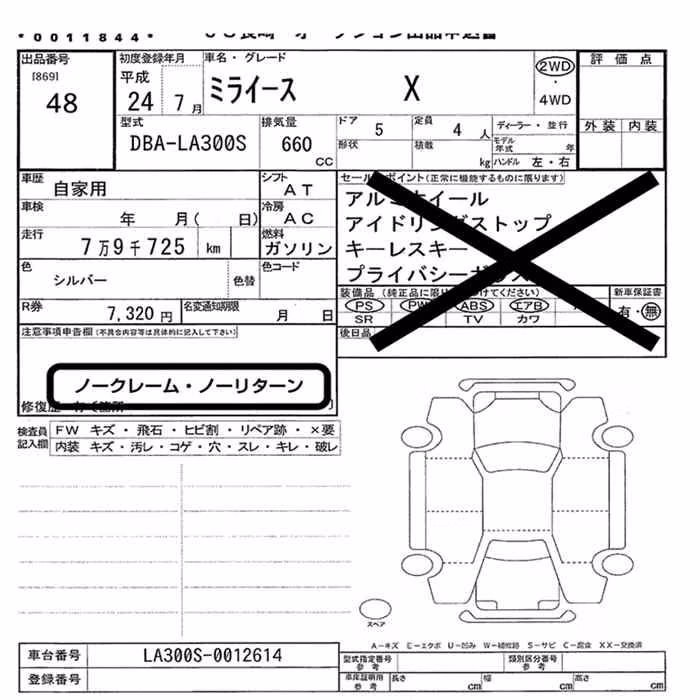 *0011844*
出品番号
[869]
48
初度登録年月
平成
24 7月
車名・グレード
ミライース X
2WD
・
4WD
評価点
外装 内装
型式
DBA-LA300S
排気量
660
CC
ドア
5
定員
4人
ディーラー・並行
モデル年式 年
形状
積載
kg
ハンドル 左・右
車歴
自家用
シフト
AT
車検
年 月( 日)
冷房
AC
走行
7万9千725 km
燃料
ガソリン
色
シルバー
色替
色コード
R券
7,320円
名変通知期限
月 日
セールスポイント(正常に機能するものに限ります)
アルミホイール
アイドリングストップ
キーレスキー
プライバシーガラス
装備品
PS
ABS
エアB
SR
TV
カワ
新車保証書
有・無
後日品
注意事項申告欄(不具合内容等は具体的に記入して下さい)
ノークレーム・ノーリターン
検査員記入欄
FW キズ・飛石・ヒビ割・リペア跡・×要
内装 キズ・汚レ・コゲ・穴・スレ・キレ・破レ
スペア
A-キズ E-エクボ U-凹み W-補修跡 S-サビ C-腐食 XX-交換済
車台番号
LA300S-0012614
登録番号
型式指定番号
参考
類別区分番号
参考
車庫証明用
参考
長さ cm
幅 cm
高さ cm